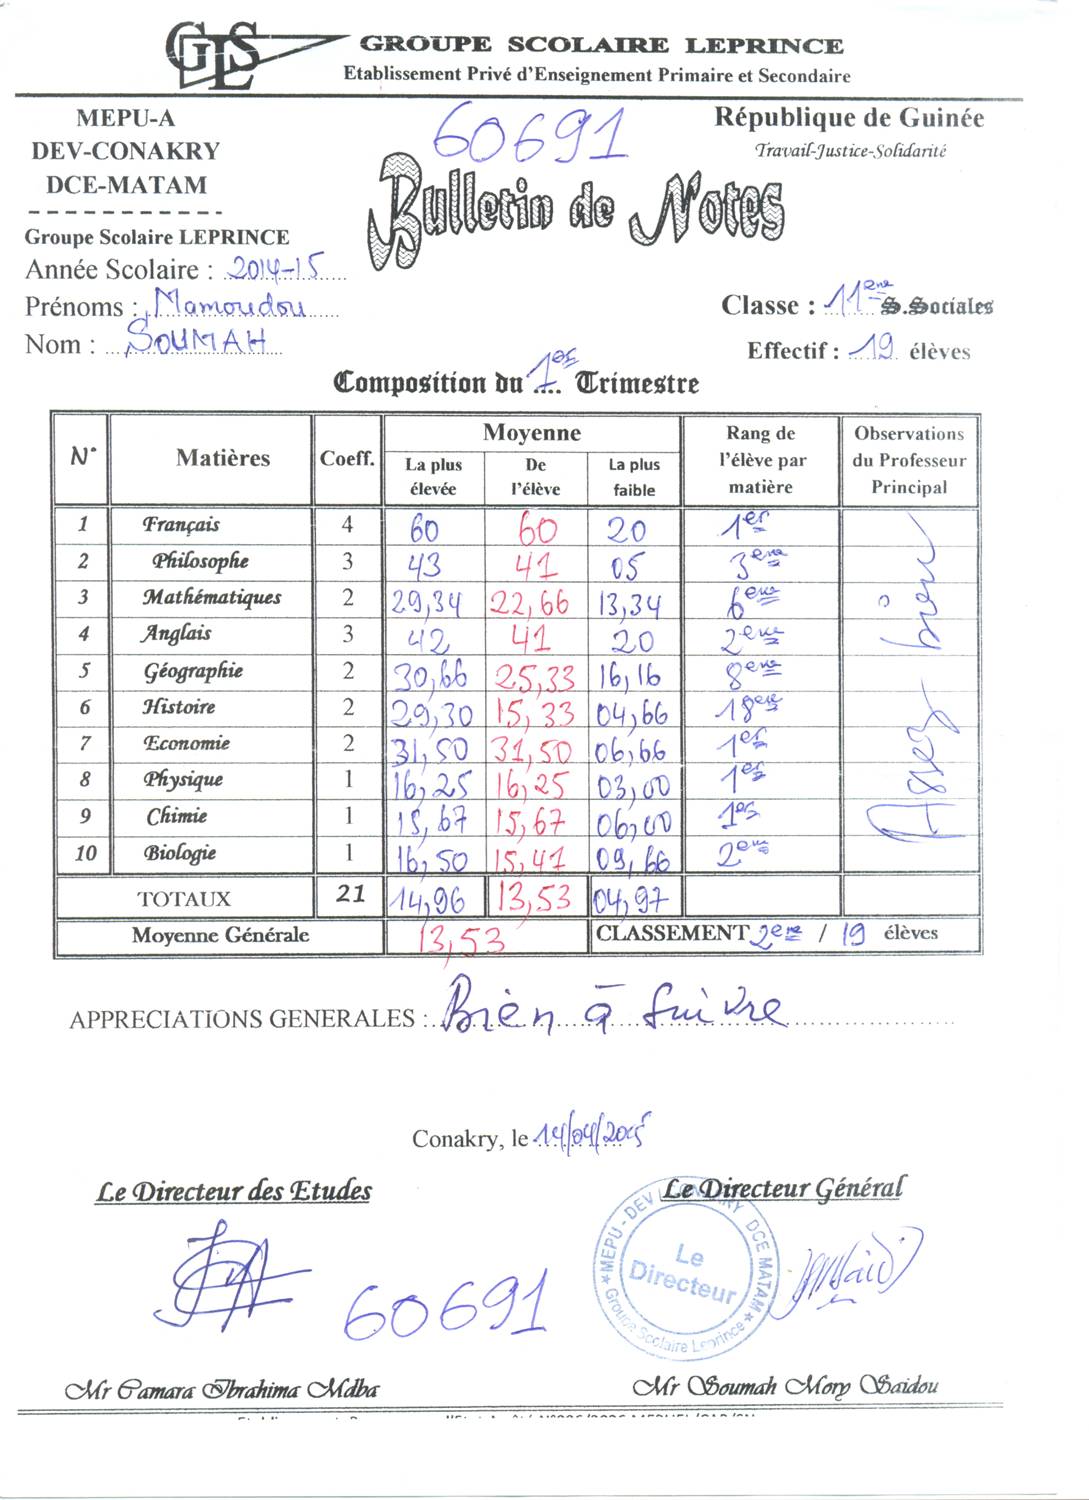 GLS GROUPE SCOLAIRE LEPRINCE
Etablissement Privé d'Enseignement Primaire et Secondaire
MEPU-A
DEV-CONAKRY
DCE-MATAM
60691
République de Guinée
Travail-Justice-Solidarité
Bulletin de Notes
Groupe Scolaire LEPRINCE
Année Scolaire : 2014-15
Prénoms : Mamoudou
Nom : SOUMAH
Classe : 11ème S.Sociales
Effectif : 19 élèves
Composition du 1er Trimestre
N° Matières Coeff. Moyenne Rang de l'élève par matière Observations du Professeur Principal
La plus élevée De l'élève La plus faible
1 Français 4 60 60 20 1er
2 Philosophe 3 43 41 05 3ème
3 Mathématiques 2 29,34 22,66 13,34 6ème
4 Anglais 3 42 41 20 2ème
5 Géographie 2 30,66 25,33 16,16 8ème
6 Histoire 2 29,30 15,33 04,66 18ème
7 Economie 2 31,50 31,50 06,66 1er
8 Physique 1 16,25 16,25 03,00 1er
9 Chimie 1 15,67 15,67 06,00 1er
10 Biologie 1 16,50 15,41 09,66 2ème
Assez bien
TOTAUX 21 14,96 13,53 04,97
Moyenne Générale 13,53 CLASSEMENT 2ème / 19 élèves
APPRECIATIONS GENERALES : Bien à suivre
Conakry, le 14/04/2015
Le Directeur des Etudes
Le Directeur Général
MEPU - DEV CONAKRY DCE MATAM
Le Directeur
Groupe Scolaire Leprince
60691
Mr Camara Ibrahima Mdba
Mr Soumah Mory Saidou